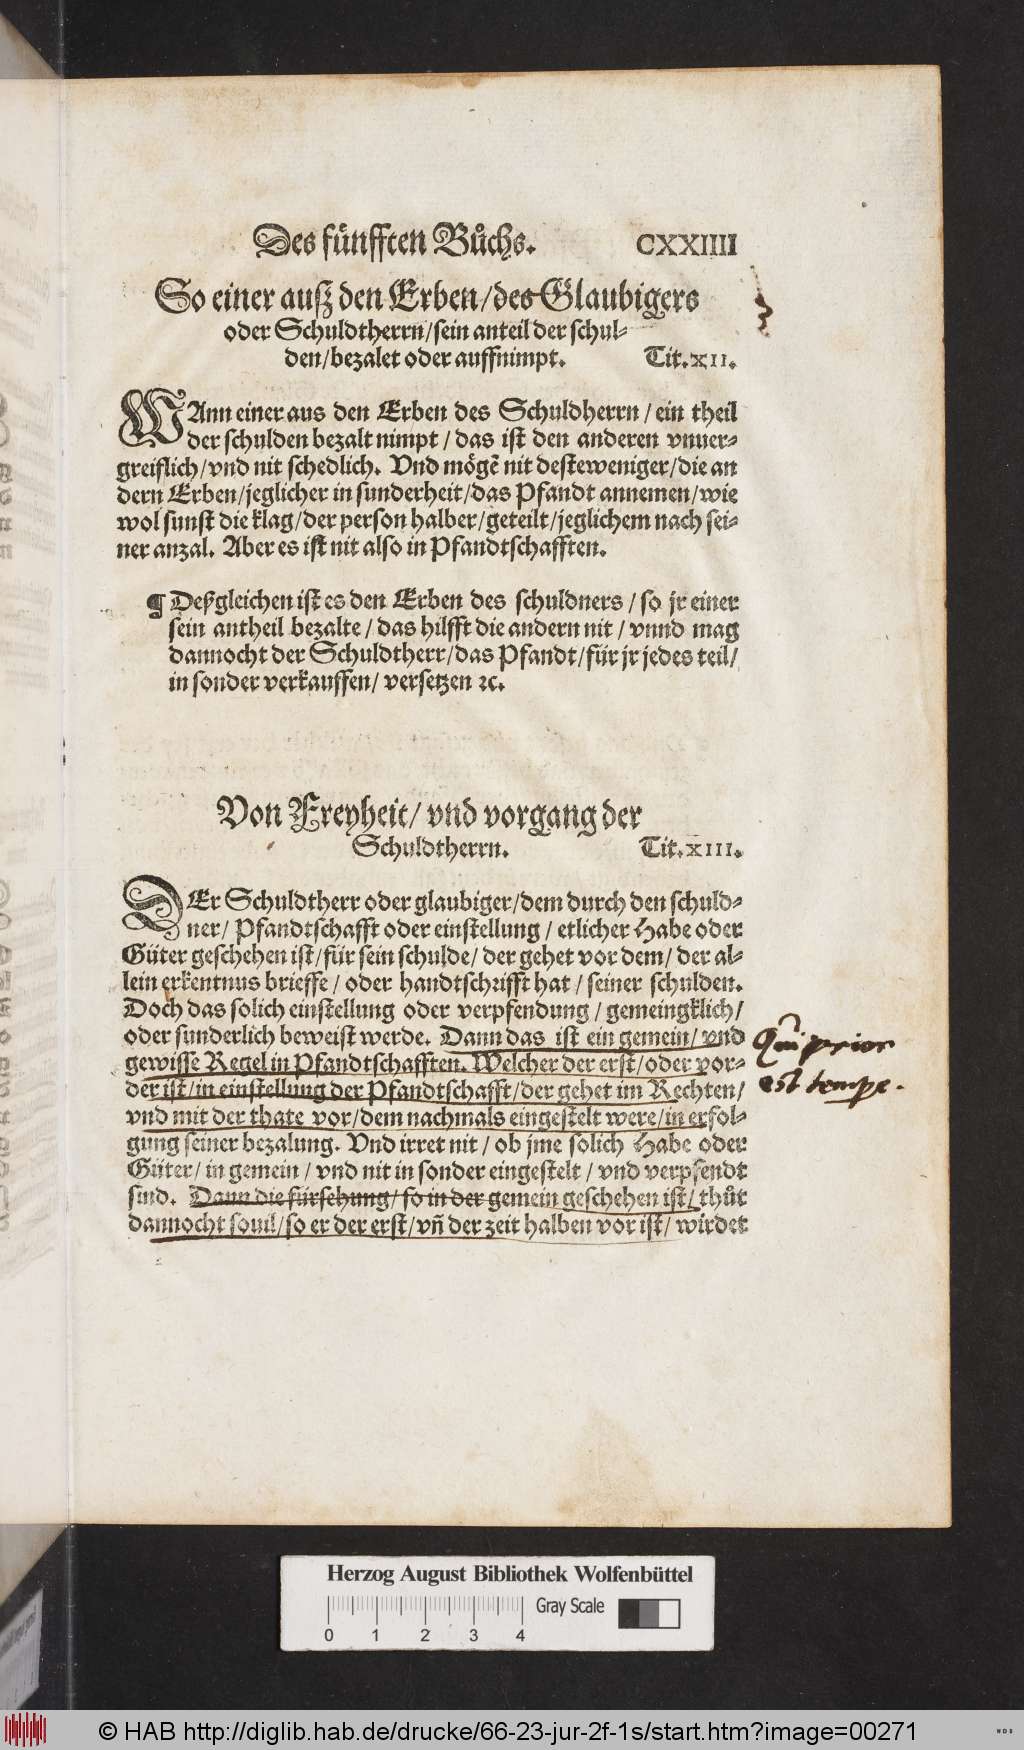 Des fünfften Bůchs. CXXIIII
So einer ausz den Erben/des Glaubigers
oder Schuldtherrn/sein anteil der schul-
den/bezalet oder auffnimpt. Tit.XII.
WAnn einer aus den Erben des Schuldherrn / ein theil
der schulden bezalt nimpt / das ist den anderen vnuer-
greiflich/vnd nit schedlich. Vnd mögẽ nit desteweniger/die an
dern Erben/jeglicher in sunderheit/das Pfandt annemen/wie
wol sunst die klag/der person halber/geteilt/jeglichem nach sei-
ner anzal. Aber es ist nit also in Pfandtschafften.
¶ Deßgleichen ist es den Erben des schuldners / so jr einer
sein antheil bezalte / das hilfft die andern nit / vnnd mag
dannocht der Schuldtherr/das Pfandt/für jr jedes teil/
in sonder verkauffen/ versetzen ꝛc.
Von Freyheit/ vnd vorgang der
Schuldtherrn. Tit.XIII.
DEr Schuldtherr oder glaubiger/dem durch den schuld-
ner/ Pfandtschafft oder einstellung / etlicher Habe oder
Güter geschehen ist/für sein schulde/ der gehet vor dem/ der al-
lein erkentnus brieffe / oder handtschrifft hat / seiner schulden.
Doch das solich einstellung oder verpfendung / gemeingklich/
oder sunderlich beweist werde. Dann das ist ein gemein/ vnd
gewisse Regel in Pfandtschafften. Welcher der erst/oder vor-
der ist/in einstellung der Pfandtschafft/der gehet im Rechten/
vnd mit der thate vor/dem nachmals eingestelt were/in erfol-
gung seiner bezalung. Vnd irret nit / ob jme solich Habe oder
Güter/ in gemein / vnd nit in sonder eingestelt / vnd verpfendt
sind. Dann die fürsehung/ so in der gemein geschehen ist/ thůt
dannocht souil/so er der erst/vñ der zeit halben vor ist/ wirdet
Qui prior
est tempe.
Herzog August Bibliothek Wolfenbüttel
Gray Scale
0 1 2 3 4
© HAB http://diglib.hab.de/drucke/66-23-jur-2f-1s/start.htm?image=00271